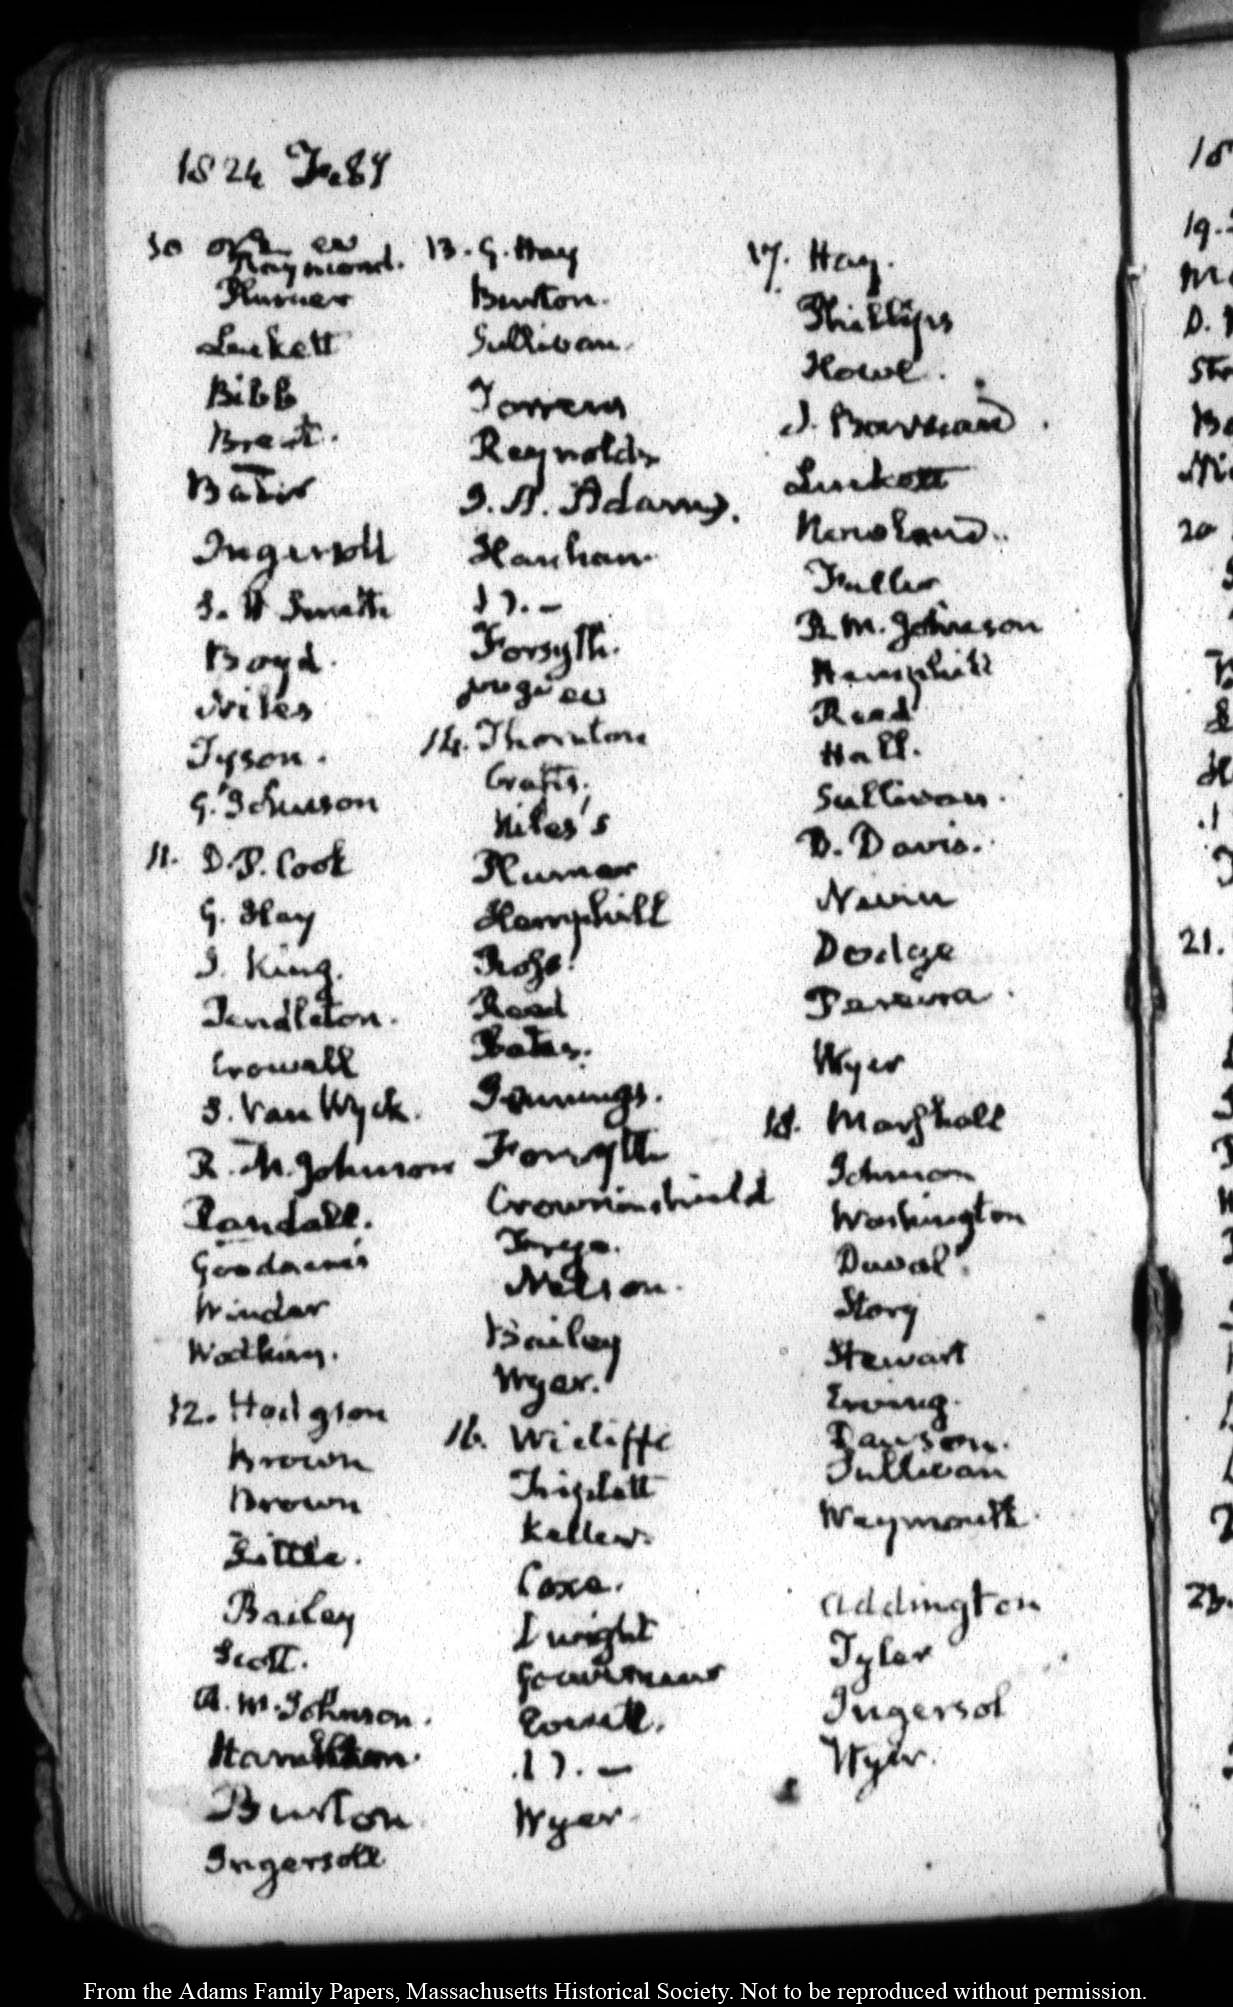 1824 Feby
10
Raymond.
Plumer
Luckett
Bibb
Brent.
Ingersoll
S. H Smith
Boyd.
Niles
Tyson.
G. Johnson
11. D.P. Cook
G. Hay
J. King.
Pendleton.
Crowell
S. Van Wyck.
R. M. Johnson
Randall.
Winder
Watkins.
12. Hodgson
Brown
Brown
Little.
Bailey
Scott.
R. M. Johnson.
Burton
Ingersoll
13. G. Hay
Burton.
Sullivan.
Torrens
Reynolds
J. A. Adams.
Forsyth.
14. Thornton
Crafts.
Niles's
Plumer
Hemphill
Ross.
Reed
Bates.
Jennings.
Forsyth
Crowninshield
Nelson.
Bailey
Wyer.
16. Wicliffe
Triplett
Coxe.
Dwight
Gouverneur
Wyer
17. Hay.
Phillips
Howe.
Luckett
Fuller
R M. Johnson
Hemphill
Read
Hall.
Sullivan.
D. Davis.
Dodge
Pereira.
Wyer
18. Marshall
Johnson
Washington
Duval.
Story
Stewart
Erving.
Sullivan
Weymouth.
Addington
Tyler
Ingersol
Wyer.
19.
20
21.
23.
From the Adams Family Papers, Massachusetts Historical Society. Not to be reproduced without permission.